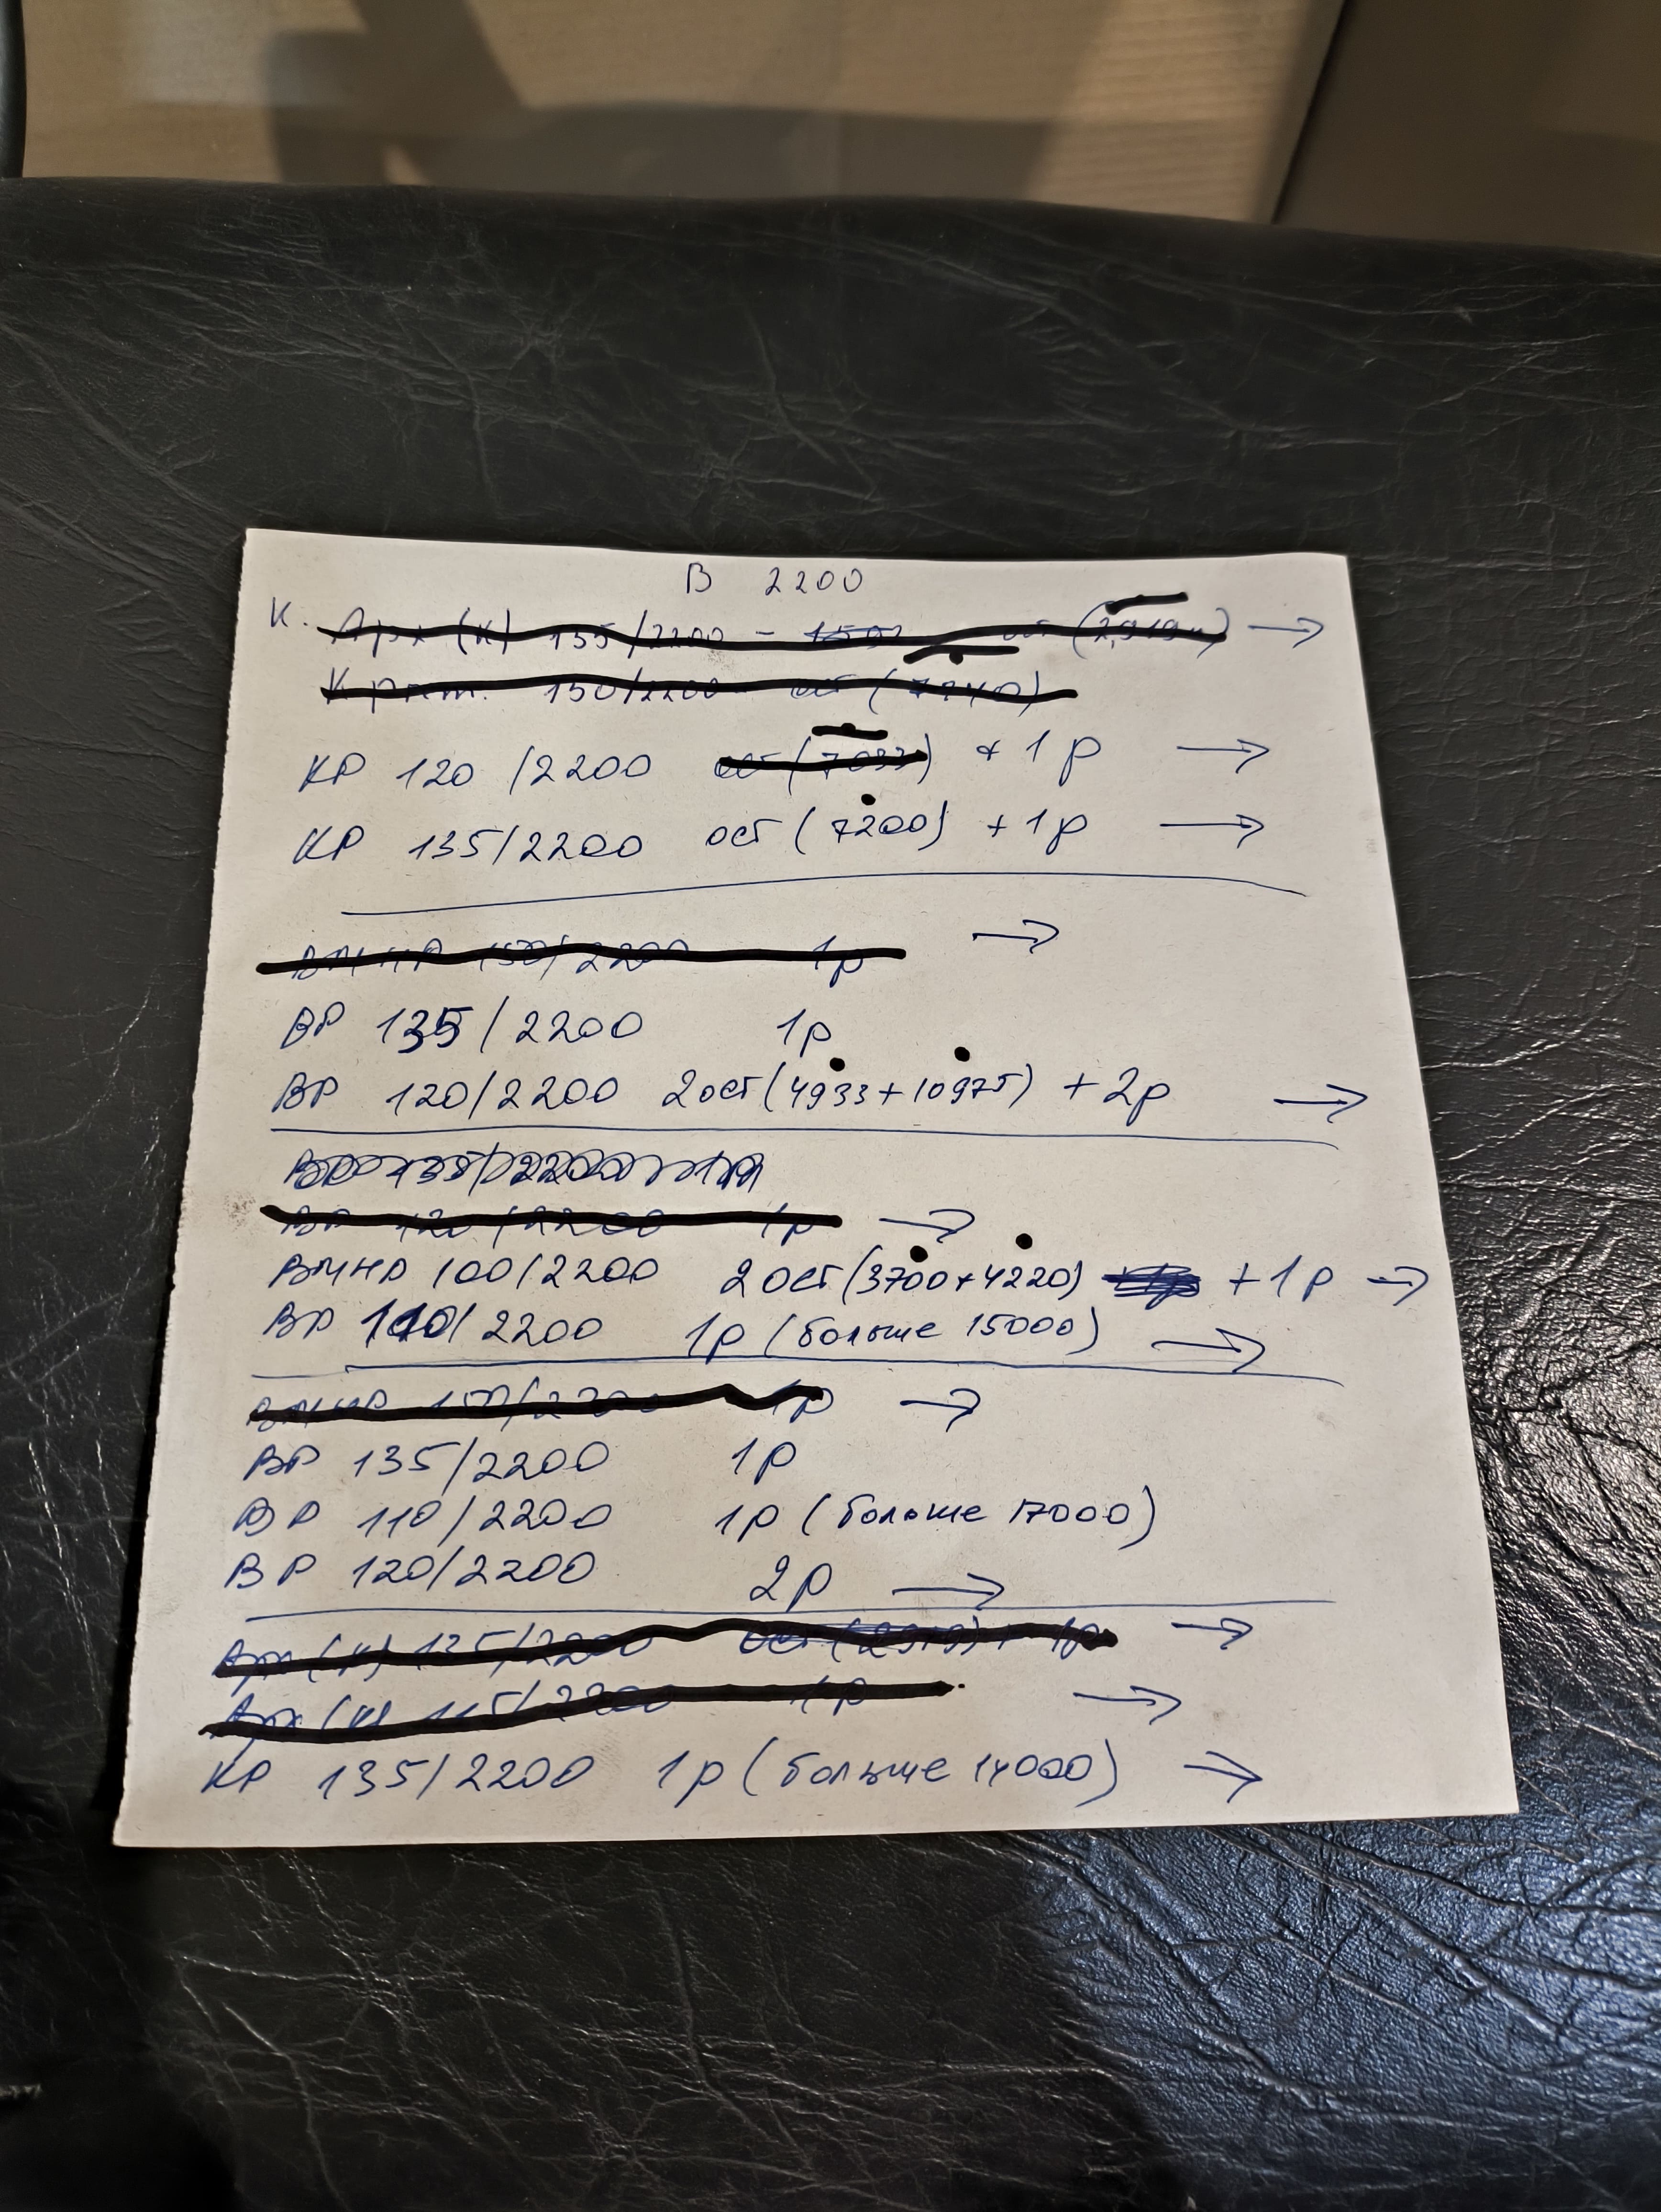 В 2200
К. Арх (К) 135/2200 - →
150/2200 ост (7740)
КР 120 /2200 ост (7033) + 1р →
КР 135/2200 ост (7200) + 1р →
ВМНР 150/2200 1р →
ВР 135/2200 1р
ВР 120/2200 2 ост (4933 + 10975) + 2р →
ВР 135/2200 1р
ВР 120/2200 1р →
ВМНР 100/2200 2 ост (3700 + 4220) + 1р →
ВР 110/2200 1р (больше 15000) →
ВМНР 150/2200 1р →
ВР 135/2200 1р
ВР 110/2200 1р (больше 17000)
ВР 120/2200 2р →
Арх (К) 135/2200 ост (2919) + 1р →
Арх (К) 115/2200 1р →
КР 135/2200 1р (больше 14000) →